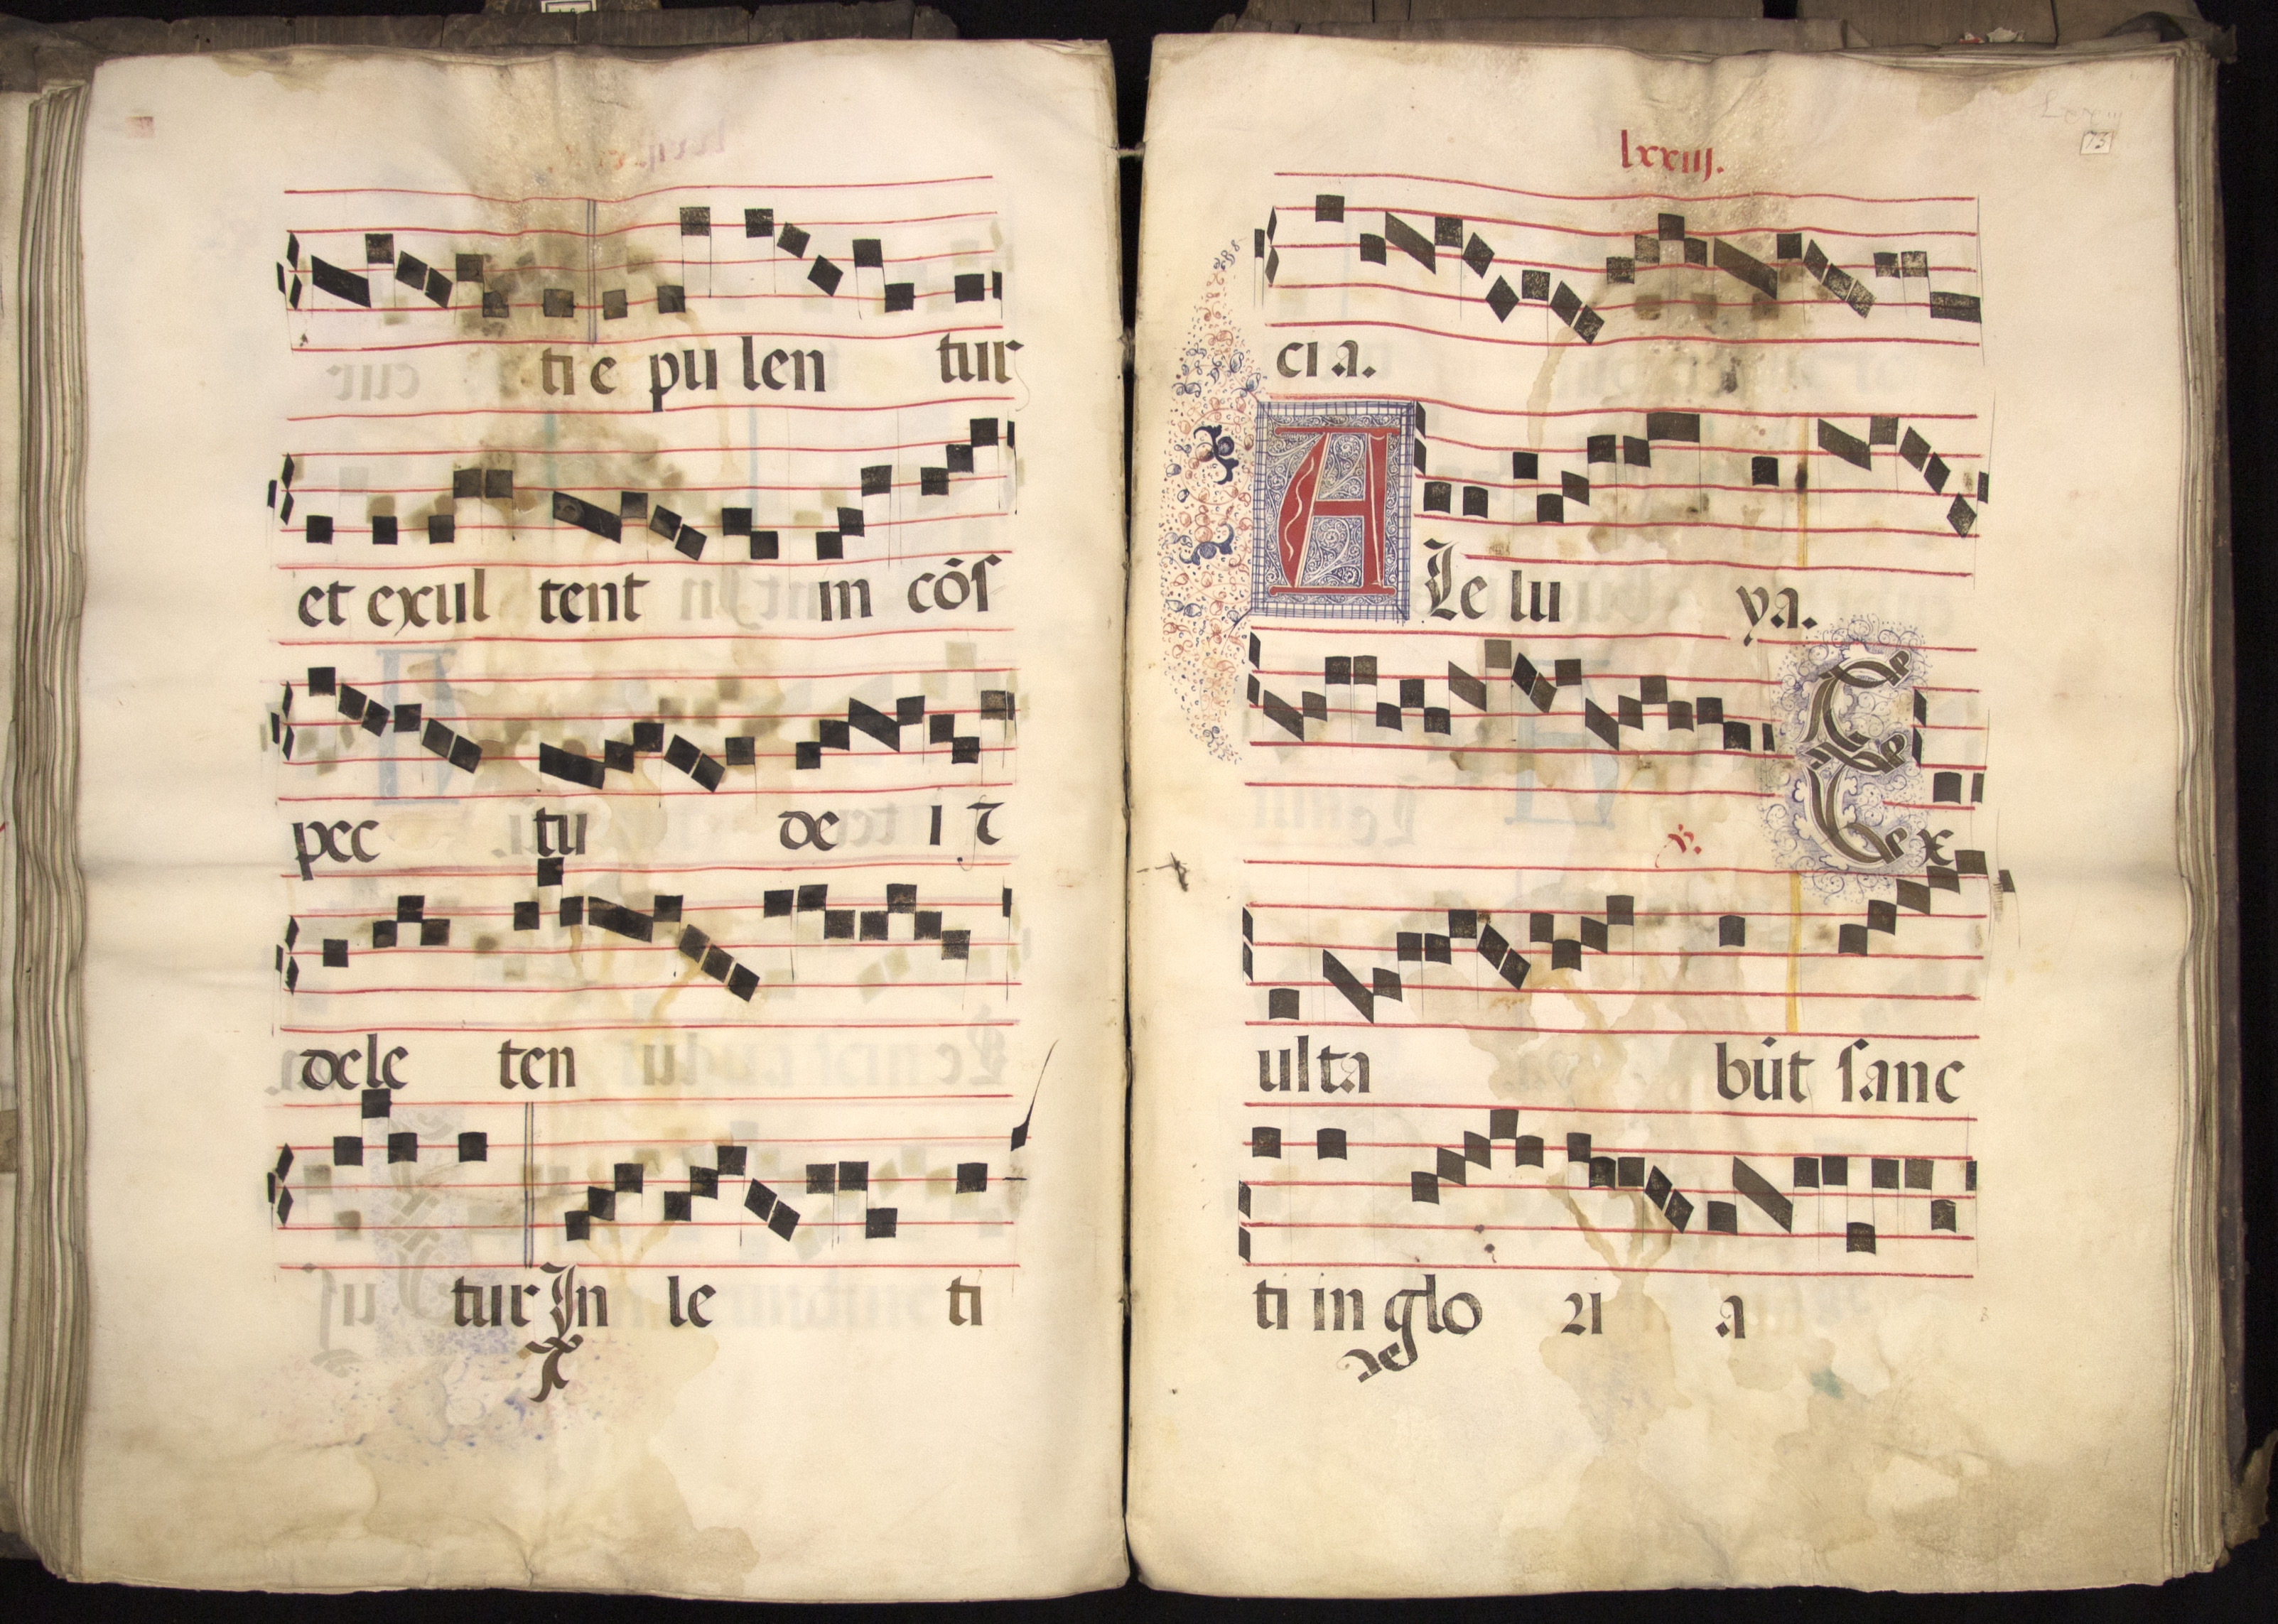 ti e pu len tur
et exul tent in cōs
pec tu de i ⁊
dele ten
tur In le ti
lxxiij.
73
cia.
A Le lu ya.
℣. Ex
ulta būt sanc
ti in glo ri a